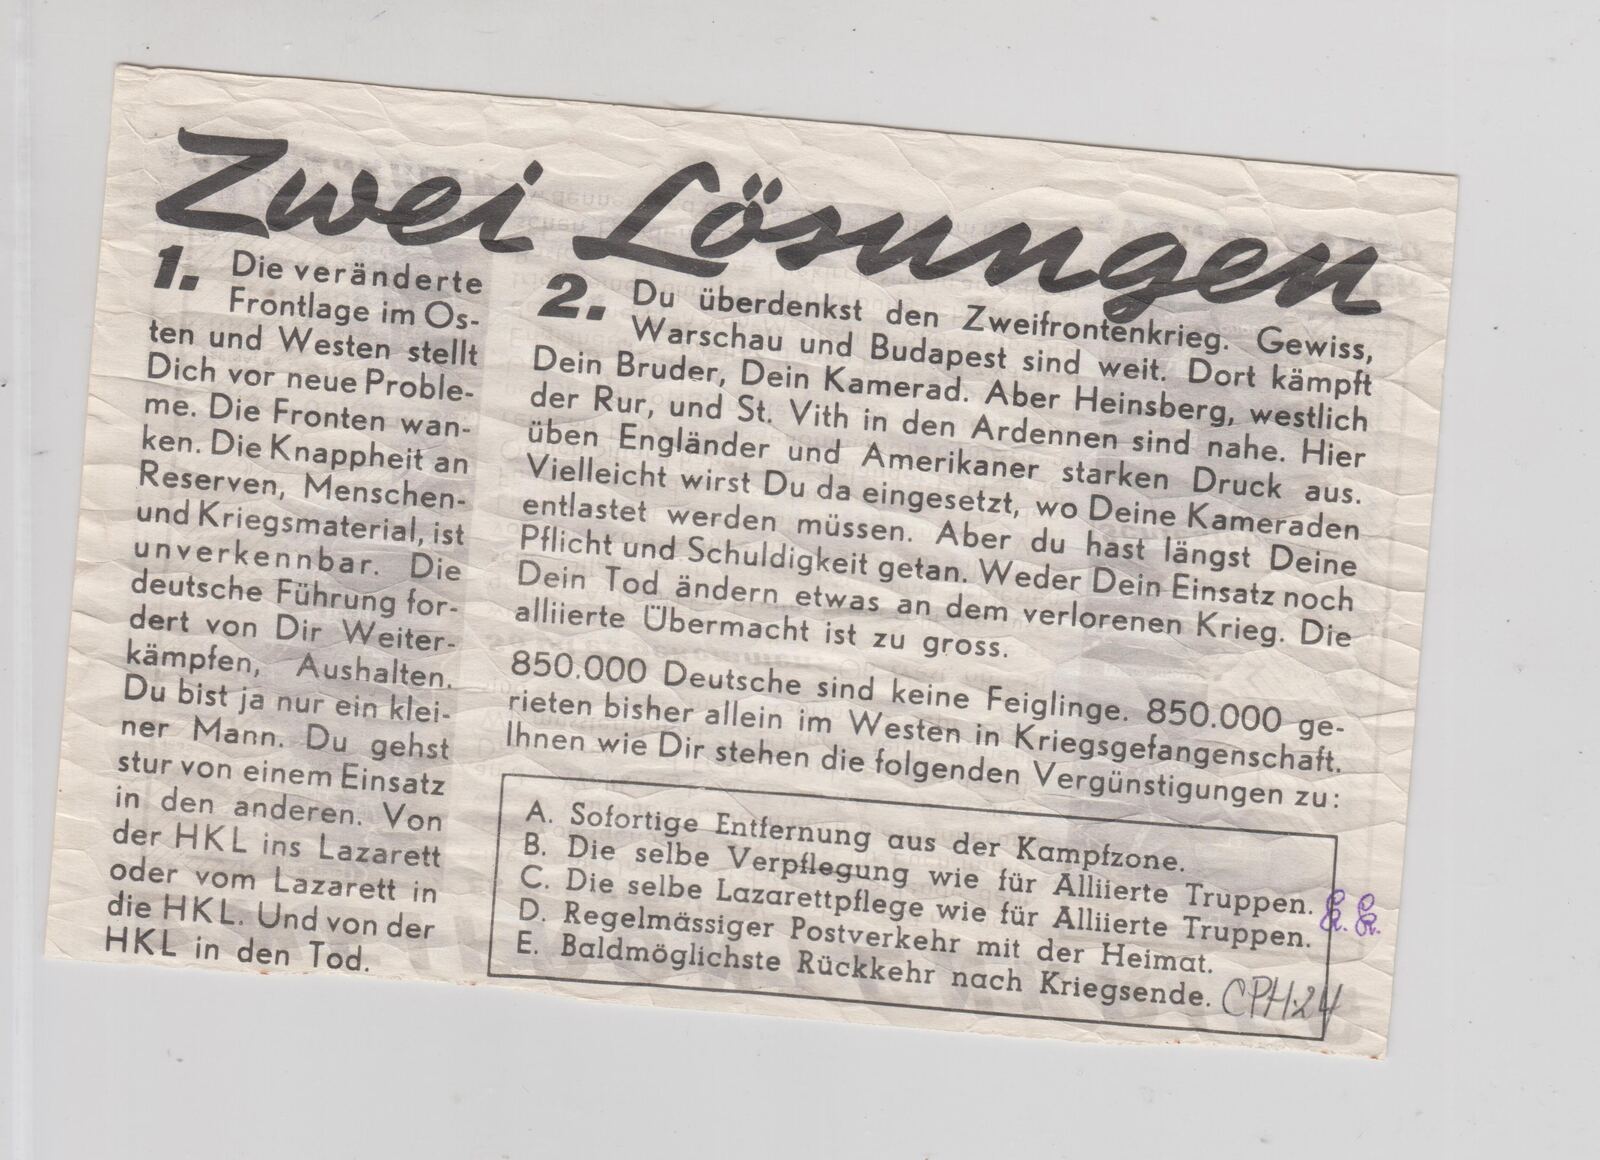 Zwei Lösungen
1. Die veränderte
Frontlage im Os-
ten und Westen stellt
Dich vor neue Proble-
me. Die Fronten wan-
ken. Die Knappheit an
Reserven, Menschen-
und Kriegsmaterial, ist
unverkennbar. Die
deutsche Führung for-
dert von Dir Weiter-
kämpfen, Aushalten.
Du bist ja nur ein klei-
ner Mann. Du gehst
stur von einem Einsatz
in den anderen. Von
der HKL ins Lazarett
oder vom Lazarett in
die HKL. Und von der
HKL in den Tod.
2. Du überdenkst den Zweifrontenkrieg. Gewiss,
Warschau und Budapest sind weit. Dort kämpft
Dein Bruder, Dein Kamerad. Aber Heinsberg, westlich
der Rur, und St. Vith in den Ardennen sind nahe. Hier
üben Engländer und Amerikaner starken Druck aus.
Vielleicht wirst Du da eingesetzt, wo Deine Kameraden
entlastet werden müssen. Aber du hast längst Deine
Pflicht und Schuldigkeit getan. Weder Dein Einsatz noch
Dein Tod ändern etwas an dem verlorenen Krieg. Die
alliierte Übermacht ist zu gross.
850.000 Deutsche sind keine Feiglinge. 850.000 ge-
rieten bisher allein im Westen in Kriegsgefangenschaft.
Ihnen wie Dir stehen die folgenden Vergünstigungen zu:
A. Sofortige Entfernung aus der Kampfzone.
B. Die selbe Verpflegung wie für Alliierte Truppen.
C. Die selbe Lazarettpflege wie für Alliierte Truppen.
D. Regelmässiger Postverkehr mit der Heimat.
E. Baldmöglichste Rückkehr nach Kriegsende.
CPH.24